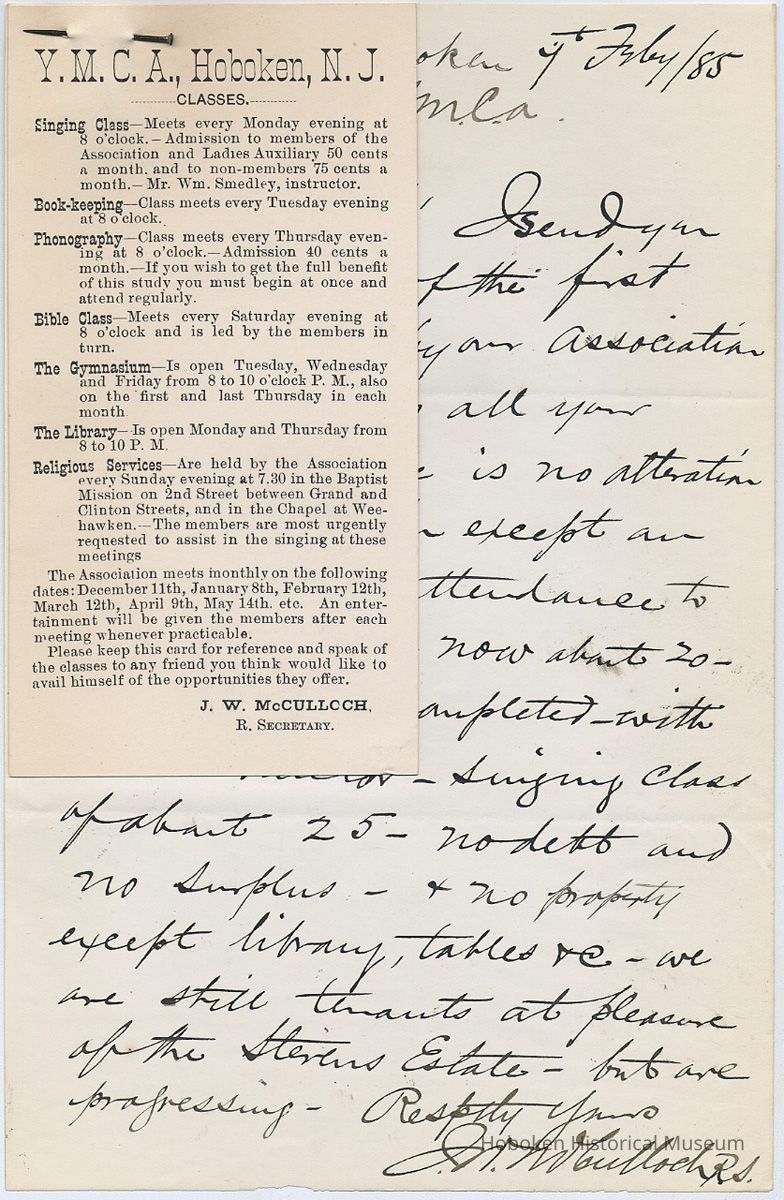 Y. M. C. A., Hoboken, N. J.
CLASSES.
Singing Class—Meets every Monday evening at
8 o'clock.—Admission to members of the
Association and Ladies Auxiliary 50 cents
a month, and to non-members 75 cents a
month.—Mr. Wm. Smedley, instructor.
Book-keeping—Class meets every Tuesday evening
at 8 o'clock.
Phonography—Class meets every Thursday even-
ing at 8 o'clock.—Admission 40 cents a
month.—If you wish to get the full benefit
of this study you must begin at once and
attend regularly.
Bible Class—Meets every Saturday evening at
8 o'clock and is led by the members in
turn.
The Gymnasium—Is open Tuesday, Wednesday
and Friday from 8 to 10 o'clock P. M., also
on the first and last Thursday in each
month.
The Library—Is open Monday and Thursday from
8 to 10 P. M.
Religious Services—Are held by the Association
every Sunday evening at 7.30 in the Baptist
Mission on 2nd Street between Grand and
Clinton Streets, and in the Chapel at Wee-
hawken.—The members are most urgently
requested to assist in the singing at these
meetings
The Association meets monthly on the following
dates: December 11th, January 8th, February 12th,
March 12th, April 9th, May 14th. etc. An enter-
tainment will be given the members after each
meeting whenever practicable.
Please keep this card for reference and speak of
the classes to any friend you think would like to
avail himself of the opportunities they offer.
J. W. McCULLOCH,
R. SECRETARY.
oken 9th Feby/85
M.C.A.
I send you
of the first
your Association
all your
is no alteration
except an
ttendance to
now about 20-
ompleted - with
- Singing Class
of about 25 - no debt and
no surplus - & no property
except library, tables &c - we
are still tenants at pleasure
of the Stevens Estate - but are
progressing - Resptly Yours
J. W. McCulloch R.S.
Hoboken Historical Museum